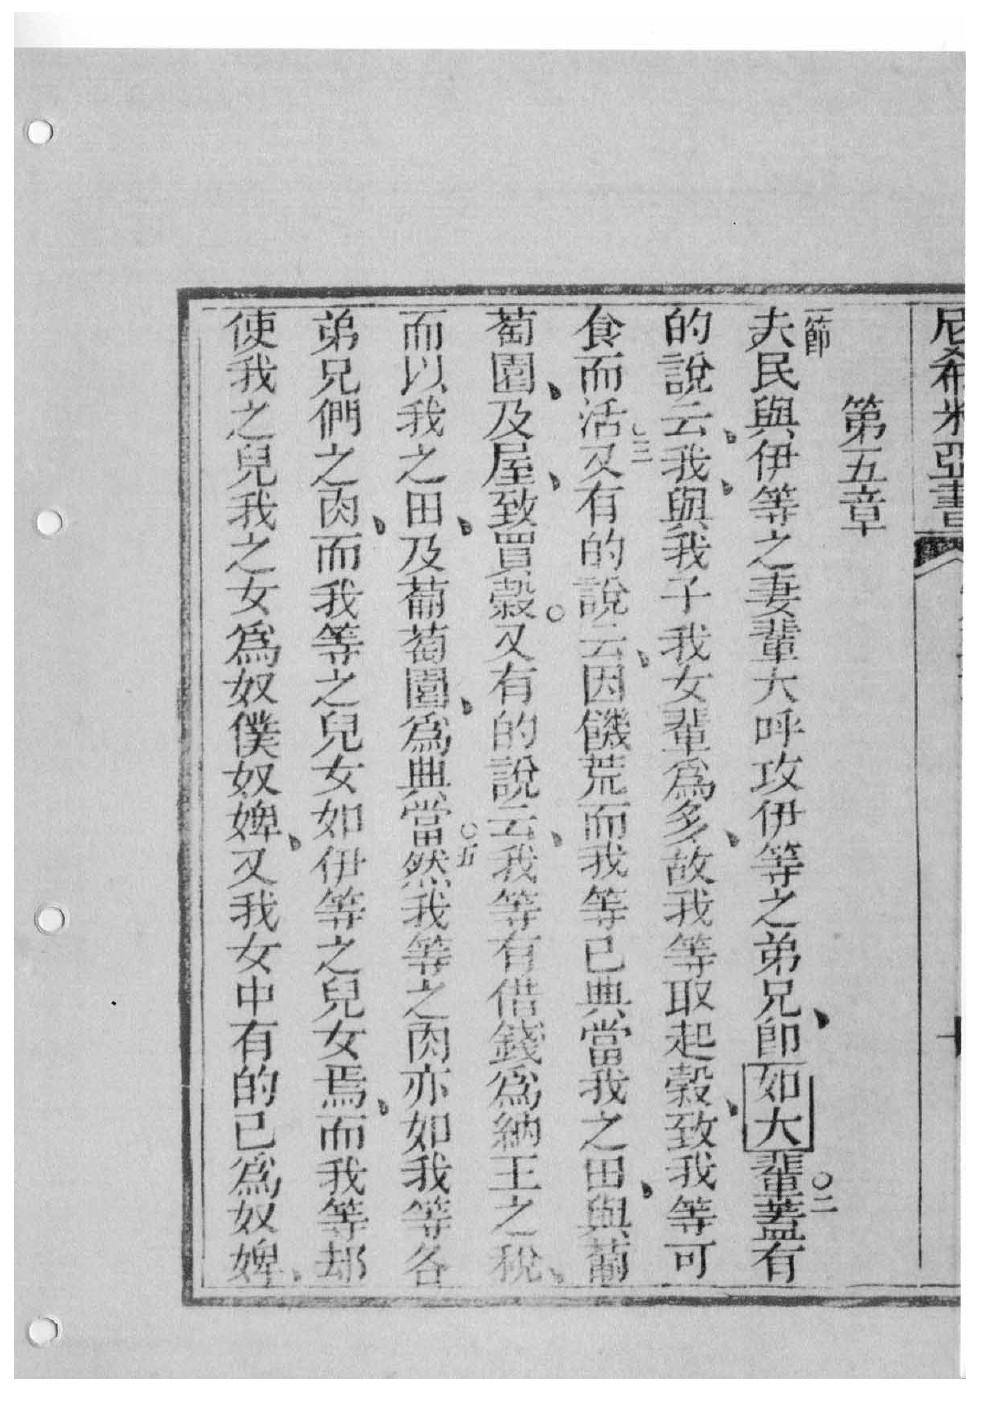 尼希米亞書
第五章
一節
夫民與伊等之妻輩大呼攻伊等之弟兄、卽如大輩○二蓋有
的說云、我、與我子我女輩爲多、故我等取起穀、致我等可
食而活○三又有的說云、因饑荒而我等已典當我之田、與葡
萄園、及屋、致買穀○又有的說云、我等有借錢爲納王之稅、
而以我之田、及葡萄園、爲典當○五然我等之肉亦如我等各
弟兄們之肉、而我等之兒女如伊等之兒女焉、而我等却
使我之兒我之女爲奴僕奴婢、又我女中有的已爲奴婢、